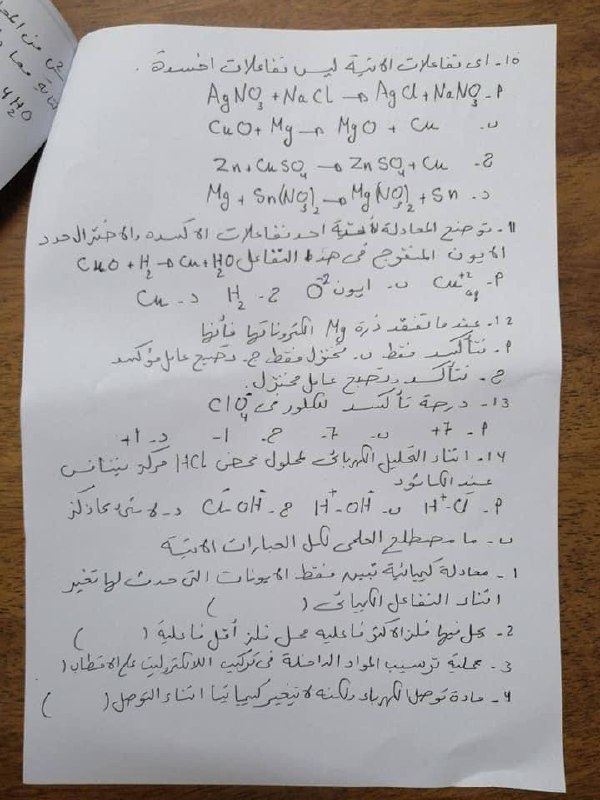 ص من المحا
4H2O
10- اى تفاعلات الاتية ليس تفاعلات اكسدة.
P- AgNO3 + NaCl → AgCl + NaNO3
ب- CuO + Mg → MgO + Cu
ج- Zn + CuSO4 → ZnSO4 + Cu
د- Mg + Sn(NO3)2 → Mg(NO3)2 + Sn
11- توضح المعادلة الاتية احد تفاعلات الاكسده والاختزال حدد
الايون المتفرج فى هذا التفاعل CuO + H2 → Cu + H2O
P- Cu+2 aq ب- ايون O-2 ج- H2 د- Cu
12- عندما تفقد ذرة Mg الكتروناتها فأنها
P- تتأكسد فقط ب- تختزل فقط ج- وتصبح عامل مؤكسد
ج- تتأكسد وتصبح عامل مختزل.
13- درجة تأكسد للكلور فى ClO4-
P- +7 ب- -7 ج- -1 د- +1
14- اثناء التحليل الكهربائى لمحلول حمض HCl مركز يتنافس
عند الكاثود
P- H+ - Cl- ب- H+ - OH- ج- Cl- OH- د- لا شئ مما ذكر
ب- ما مصطلح العلمى لكل العبارات الاتية
1- معادلة كيميائية تبين فقط الايونات التى حدث لها تغير
اثناء التفاعل الكيميائى ( )
2- يحل فيها فلز الاكثر فاعليه محل فلز أقل فاعلية ( )
3- عملية ترسيب المواد الداخلة فى تركيب الالكتروليت على الاقطاب (
4- مادة توصل الكهرباء ولكنه لا تتغير كيميائيا اثناء التوصل ( )